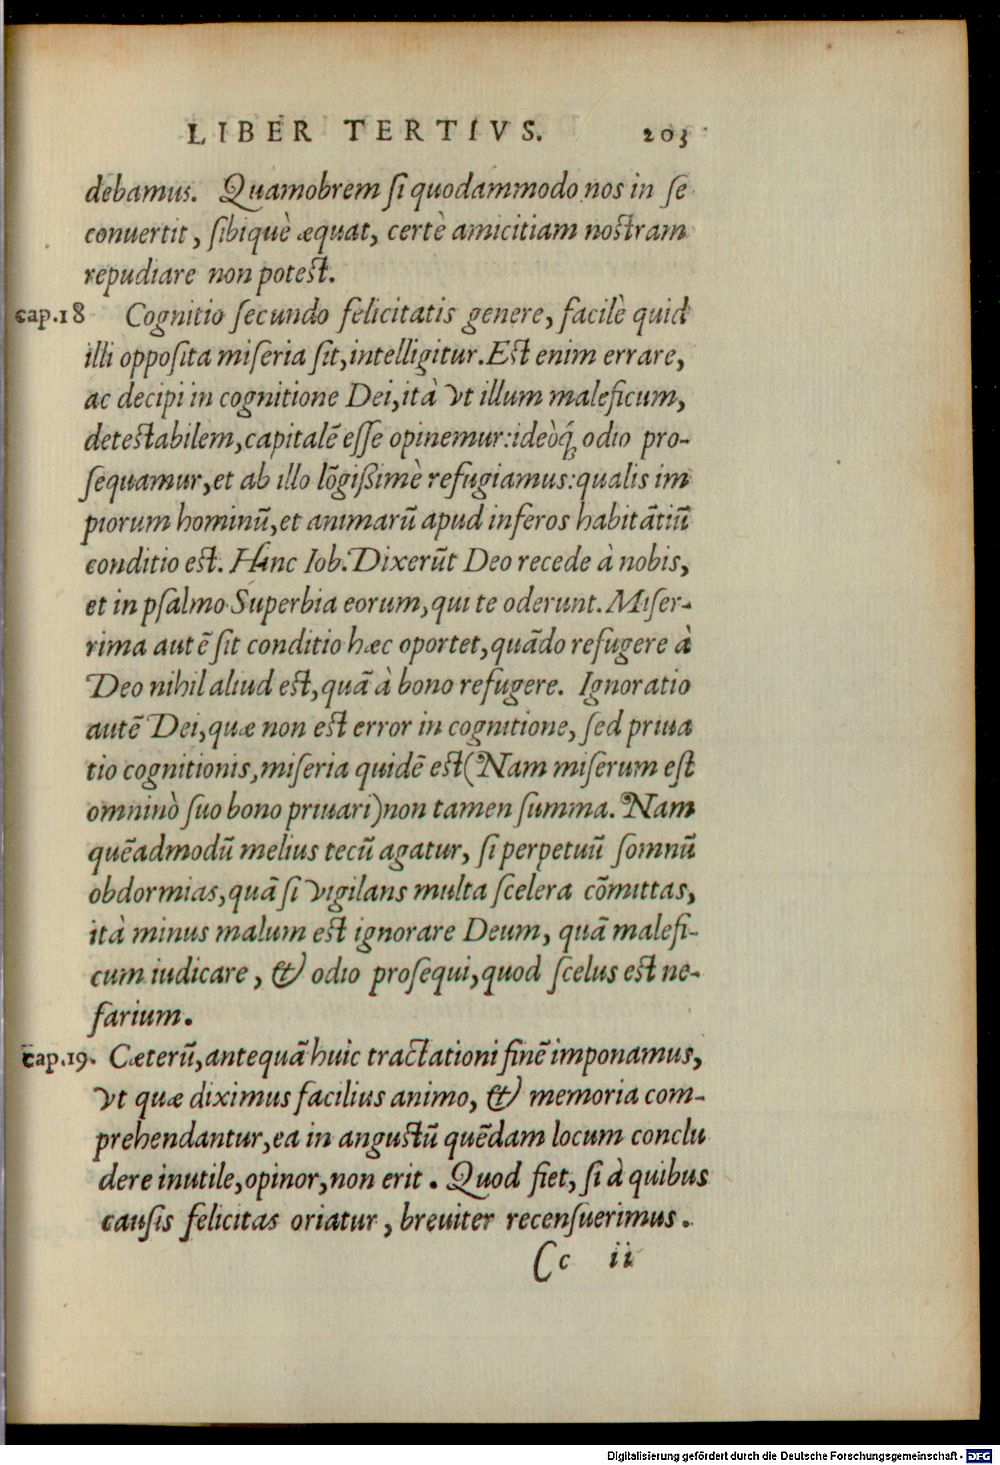 LIBER TERTIVS. 203
debamus. Quamobrem si quodammodo nos in se
conuertit, sibiquè æquat, certè amicitiam nostram
repudiare non potest.
cap.18 Cognitio secundo felicitatis genere, facilè quid
illi opposita miseria sit, intelligitur. Est enim errare,
ac decipi in cognitione Dei, ità vt illum maleficum,
detestabilem, capitalē esse opinemur: ideòq́ odio pro-
sequamur, et ab illo lōgißimè refugiamus: qualis im
piorum hominū, et animarū apud inferos habitātiū
conditio est. Hinc Iob. Dixerūt Deo recede à nobis,
et in psalmo Superbia eorum, qui te oderunt. Miser-
rima autē sit conditio hæc oportet, quādo refugere à
Deo nihil aliud est, quā à bono refugere. Ignoratio
autē Dei, quæ non est error in cognitione, sed priua
tio cognitionis, miseria quidē est (Nam miserum est
omninò suo bono priuari) non tamen summa. Nam
quēadmodū melius tecū agatur, si perpetuū somnū
obdormias, quā si vigilans multa scelera cōmittas,
ità minus malum est ignorare Deum, quā malefi-
cum iudicare, & odio prosequi, quod scelus est ne-
farium.
cap.19. Cæterū, antequā huic tractationi finē imponamus,
vt quæ diximus facilius animo, & memoria com-
prehendantur, ea in angustū quēdam locum conclu
dere inutile, opinor, non erit. Quod fiet, si à quibus
causis felicitas oriatur, breuiter recensuerimus.
Cc ii
Digitalisierung gefördert durch die Deutsche Forschungsgemeinschaft - DFG